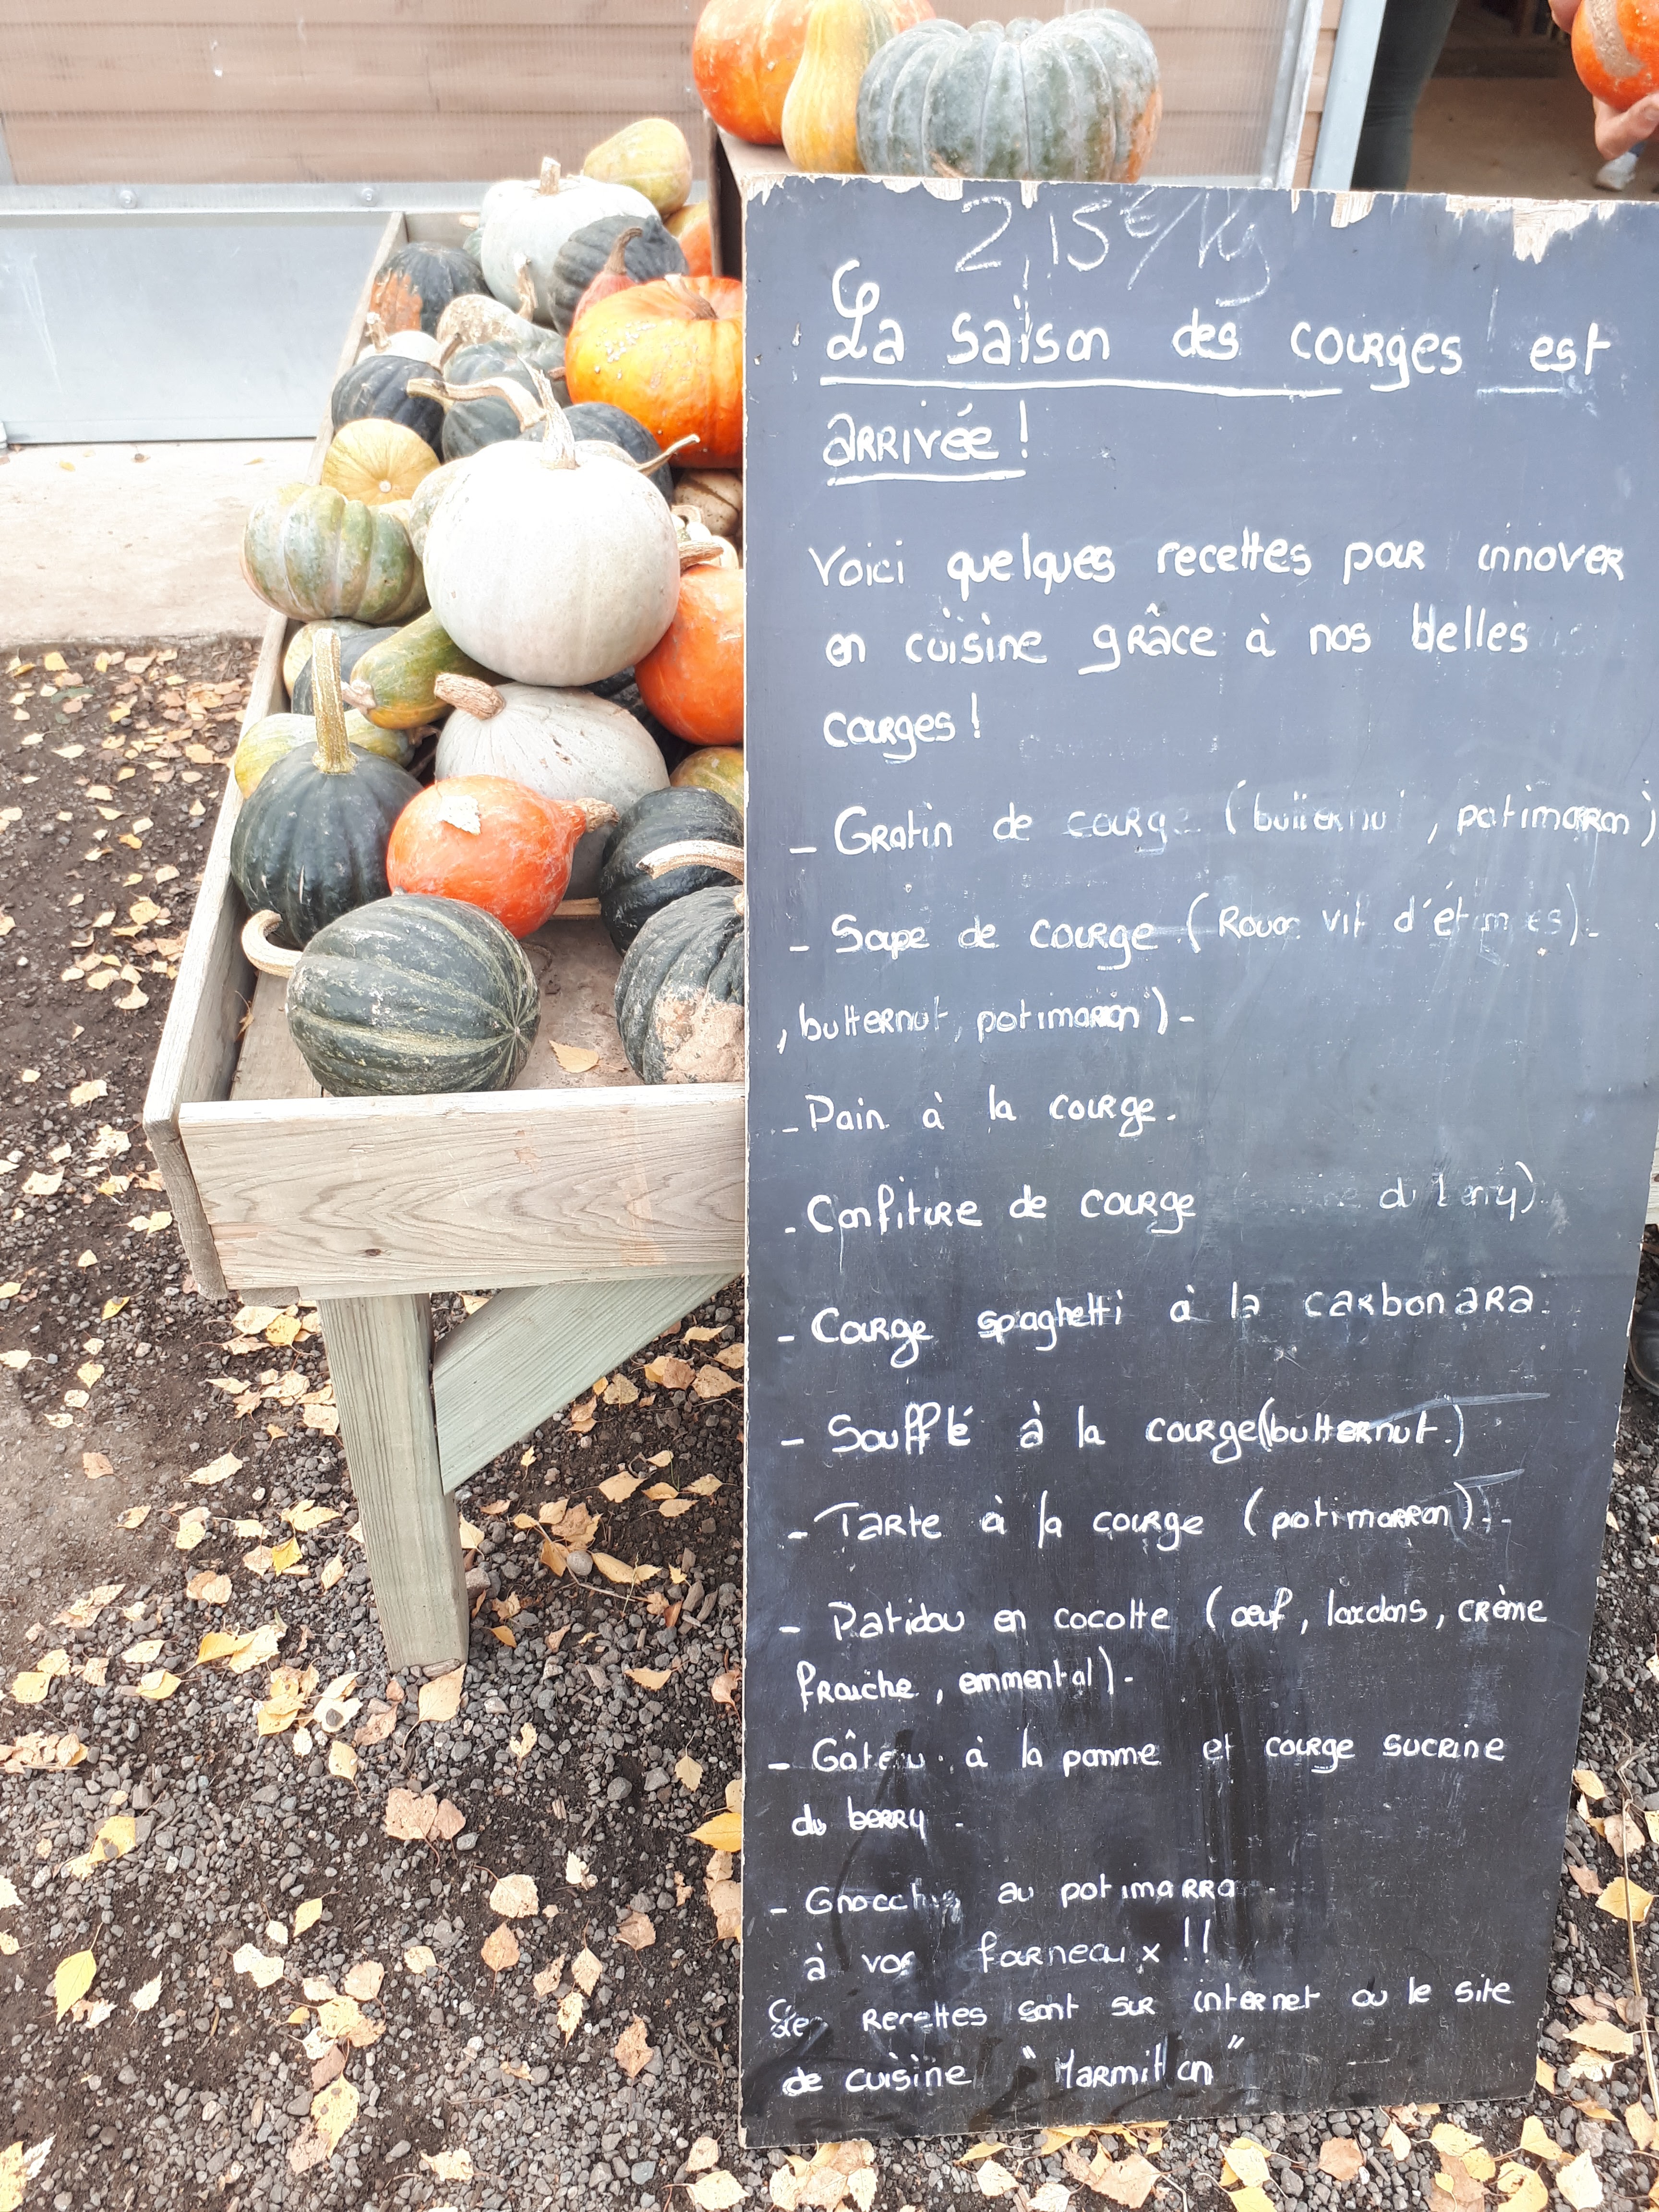 2,15€/Kg
La saison des courges est
arrivée !
Voici quelques recettes pour innover
en cuisine grâce à nos belles
courges !
- Gratin de courge (butternut, potimaron)
- Soupe de courge (Rouge vif d'étampes).
, butternut, potimaron) -
- Pain à la courge.
- Confiture de courge du berry).
- Courge spaghetti à la carbonara.
- Soufflé à la courge (butternut.)
- Tarte à la courge (potimarron). -
- Patidou en cocotte (œuf, lardons, crème
fraiche, emmental) -
- Gâteau à la pomme et courge sucrine
du berry -
- Gnocchis au potimarron -
à vos fourneaux !!
Les recettes sont sur internet ou le site
de cuisine "Marmitton"